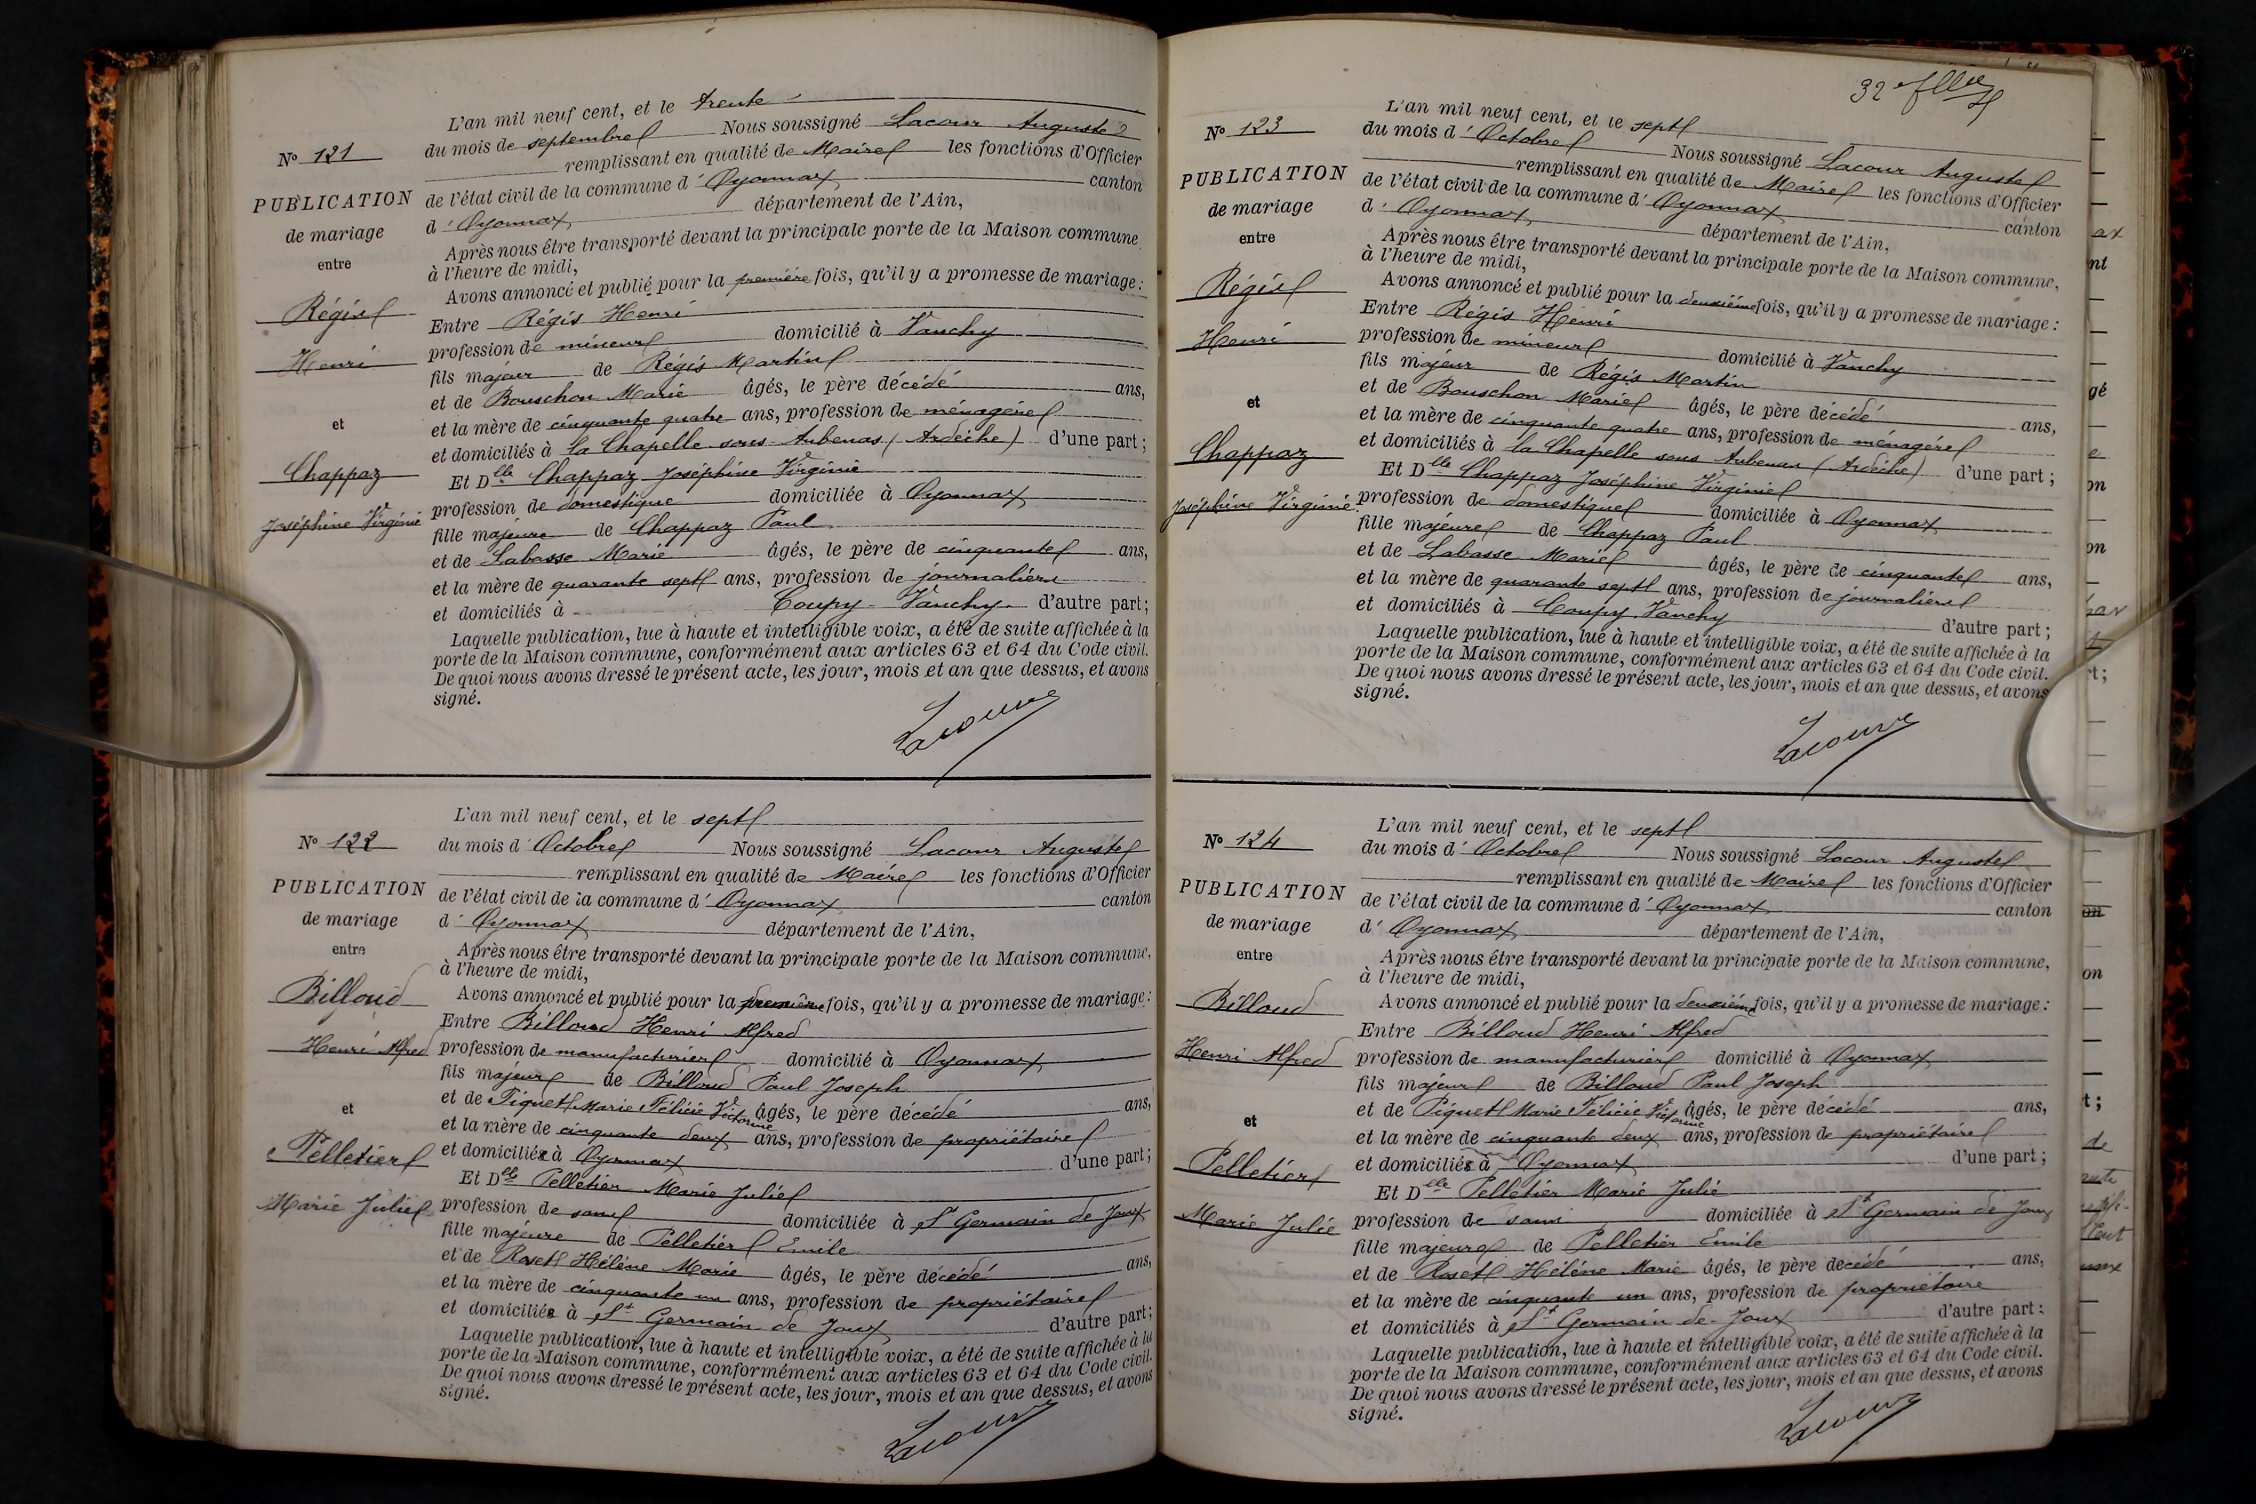 L'an mil neuf cent, et le trente
N° 121
du mois de septembre Nous soussigné Lacour Auguste
remplissant en qualité de Maire les fonctions d'Officier
PUBLICATION
de mariage
entre
Régis
Henri
et
Chappaz
Joséphine Virginie
de l'état civil de la commune d'Oyonnax canton
d'Oyonnax département de l'Ain,
Après nous être transporté devant la principale porte de la Maison commune
à l'heure de midi,
Avons annoncé et publié pour la première fois, qu'il y a promesse de mariage :
Entre Régis Henri
profession de mineur domicilié à Vanchy
fils majeur de Régis Martin
et de Bouschon Marie âgés, le père décédé ans,
et la mère de cinquante quatre ans, profession de ménagère
et domiciliés à La Chapelle sous Aubenas (Ardèche) d'une part ;
Et Dlle Chappaz Joséphine Virginie
profession de domestique domiciliée à Oyonnax
fille majeure de Chappaz Paul
et de Labasse Marie âgés, le père de cinquante ans,
et la mère de quarante sept ans, profession de journalière
et domiciliés à Coupy-Vanchy d'autre part ;
Laquelle publication, lue à haute et intelligible voix, a été de suite affichée à la
porte de la Maison commune, conformément aux articles 63 et 64 du Code civil.
De quoi nous avons dressé le présent acte, les jour, mois et an que dessus, et avons
signé.
Lacour
L'an mil neuf cent, et le sept
N° 122
du mois d'Octobre Nous soussigné Lacour Auguste
remplissant en qualité de Maire les fonctions d'Officier
PUBLICATION
de mariage
entre
Billoud
Henri Alfred
et
Pelletier
Marie Julie
de l'état civil de la commune d'Oyonnax canton
d'Oyonnax département de l'Ain,
Après nous être transporté devant la principale porte de la Maison commune,
à l'heure de midi,
Avons annoncé et publié pour la première fois, qu'il y a promesse de mariage :
Entre Billoud Henri Alfred
profession de manufacturier domicilié à Oyonnax
fils majeur de Billoud Paul Joseph
et de Piquet Marie Félicie Victorine âgés, le père décédé ans,
et la mère de cinquante deux ans, profession de propriétaire
et domiciliée à Oyonnax d'une part ;
Et Dlle Pelletier Marie Julie
profession de sans domiciliée à St Germain de Joux
fille majeure de Pelletier Emile
et de Roset Hélène Marie âgés, le père décédé ans,
et la mère de cinquante un ans, profession de propriétaire
et domiciliée à St Germain de Joux d'autre part ;
Laquelle publication, lue à haute et intelligible voix, a été de suite affichée à la
porte de la Maison commune, conformément aux articles 63 et 64 du Code civil.
De quoi nous avons dressé le présent acte, les jour, mois et an que dessus, et avons
signé.
Lacour
32e
L'an mil neuf cent, et le sept
N° 123
du mois d'Octobre Nous soussigné Lacour Auguste
remplissant en qualité de Maire les fonctions d'Officier
PUBLICATION
de mariage
entre
Régis
Henri
et
Chappaz
Joséphine Virginie
de l'état civil de la commune d'Oyonnax
d'Oyonnax département de l'Ain, canton
Après nous être transporté devant la principale porte de la Maison commune,
à l'heure de midi,
Avons annoncé et publié pour la deuxième fois, qu'il y a promesse de mariage :
Entre Régis Henri
profession de mineur domicilié à Vanchy
fils majeur de Régis Martin
et de Bouschon Marie âgés, le père décédé ans,
et la mère de cinquante quatre ans, profession de ménagère
et domiciliés à la Chapelle sous Aubenas (Ardèche) d'une part ;
Et Dlle Chappaz Joséphine Virginie
profession de domestique domiciliée à Oyonnax
fille majeure de Chappaz Paul
et de Labasse Marie âgés, le père de cinquante ans,
et la mère de quarante sept ans, profession de journalière
et domiciliés à Coupy-Vanchy d'autre part ;
Laquelle publication, lue à haute et intelligible voix, a été de suite affichée à la
porte de la Maison commune, conformément aux articles 63 et 64 du Code civil.
De quoi nous avons dressé le présent acte, les jour, mois et an que dessus, et avons
signé.
Lacour
L'an mil neuf cent, et le sept
N° 124
du mois d'Octobre Nous soussigné Lacour Auguste
remplissant en qualité de Maire les fonctions d'Officier
PUBLICATION
de mariage
entre
Billoud
Henri Alfred
et
Pelletier
Marie Julie
de l'état civil de la commune d'Oyonnax canton
d'Oyonnax département de l'Ain,
Après nous être transporté devant la principale porte de la Maison commune,
à l'heure de midi,
Avons annoncé et publié pour la deuxième fois, qu'il y a promesse de mariage :
Entre Billoud Henri Alfred
profession de manufacturier domicilié à Oyonnax
fils majeur de Billoud Paul Joseph
et de Piquet Marie Félicie Victorine âgés, le père décédé ans,
et la mère de cinquante deux ans, profession de propriétaire
et domiciliés à Oyonnax d'une part ;
Et Dlle Pelletier Marie Julie
profession de sans domiciliée à St Germain de Joux
fille majeure de Pelletier Emile
et de Roset Hélène Marie âgés, le père décédé ans,
et la mère de cinquante un ans, profession de propriétaire
et domiciliés à St Germain de Joux d'autre part :
Laquelle publication, lue à haute et intelligible voix, a été de suite affichée à la
porte de la Maison commune, conformément aux articles 63 et 64 du Code civil.
De quoi nous avons dressé le présent acte, les jour, mois et an que dessus, et avons
signé.
Lacour